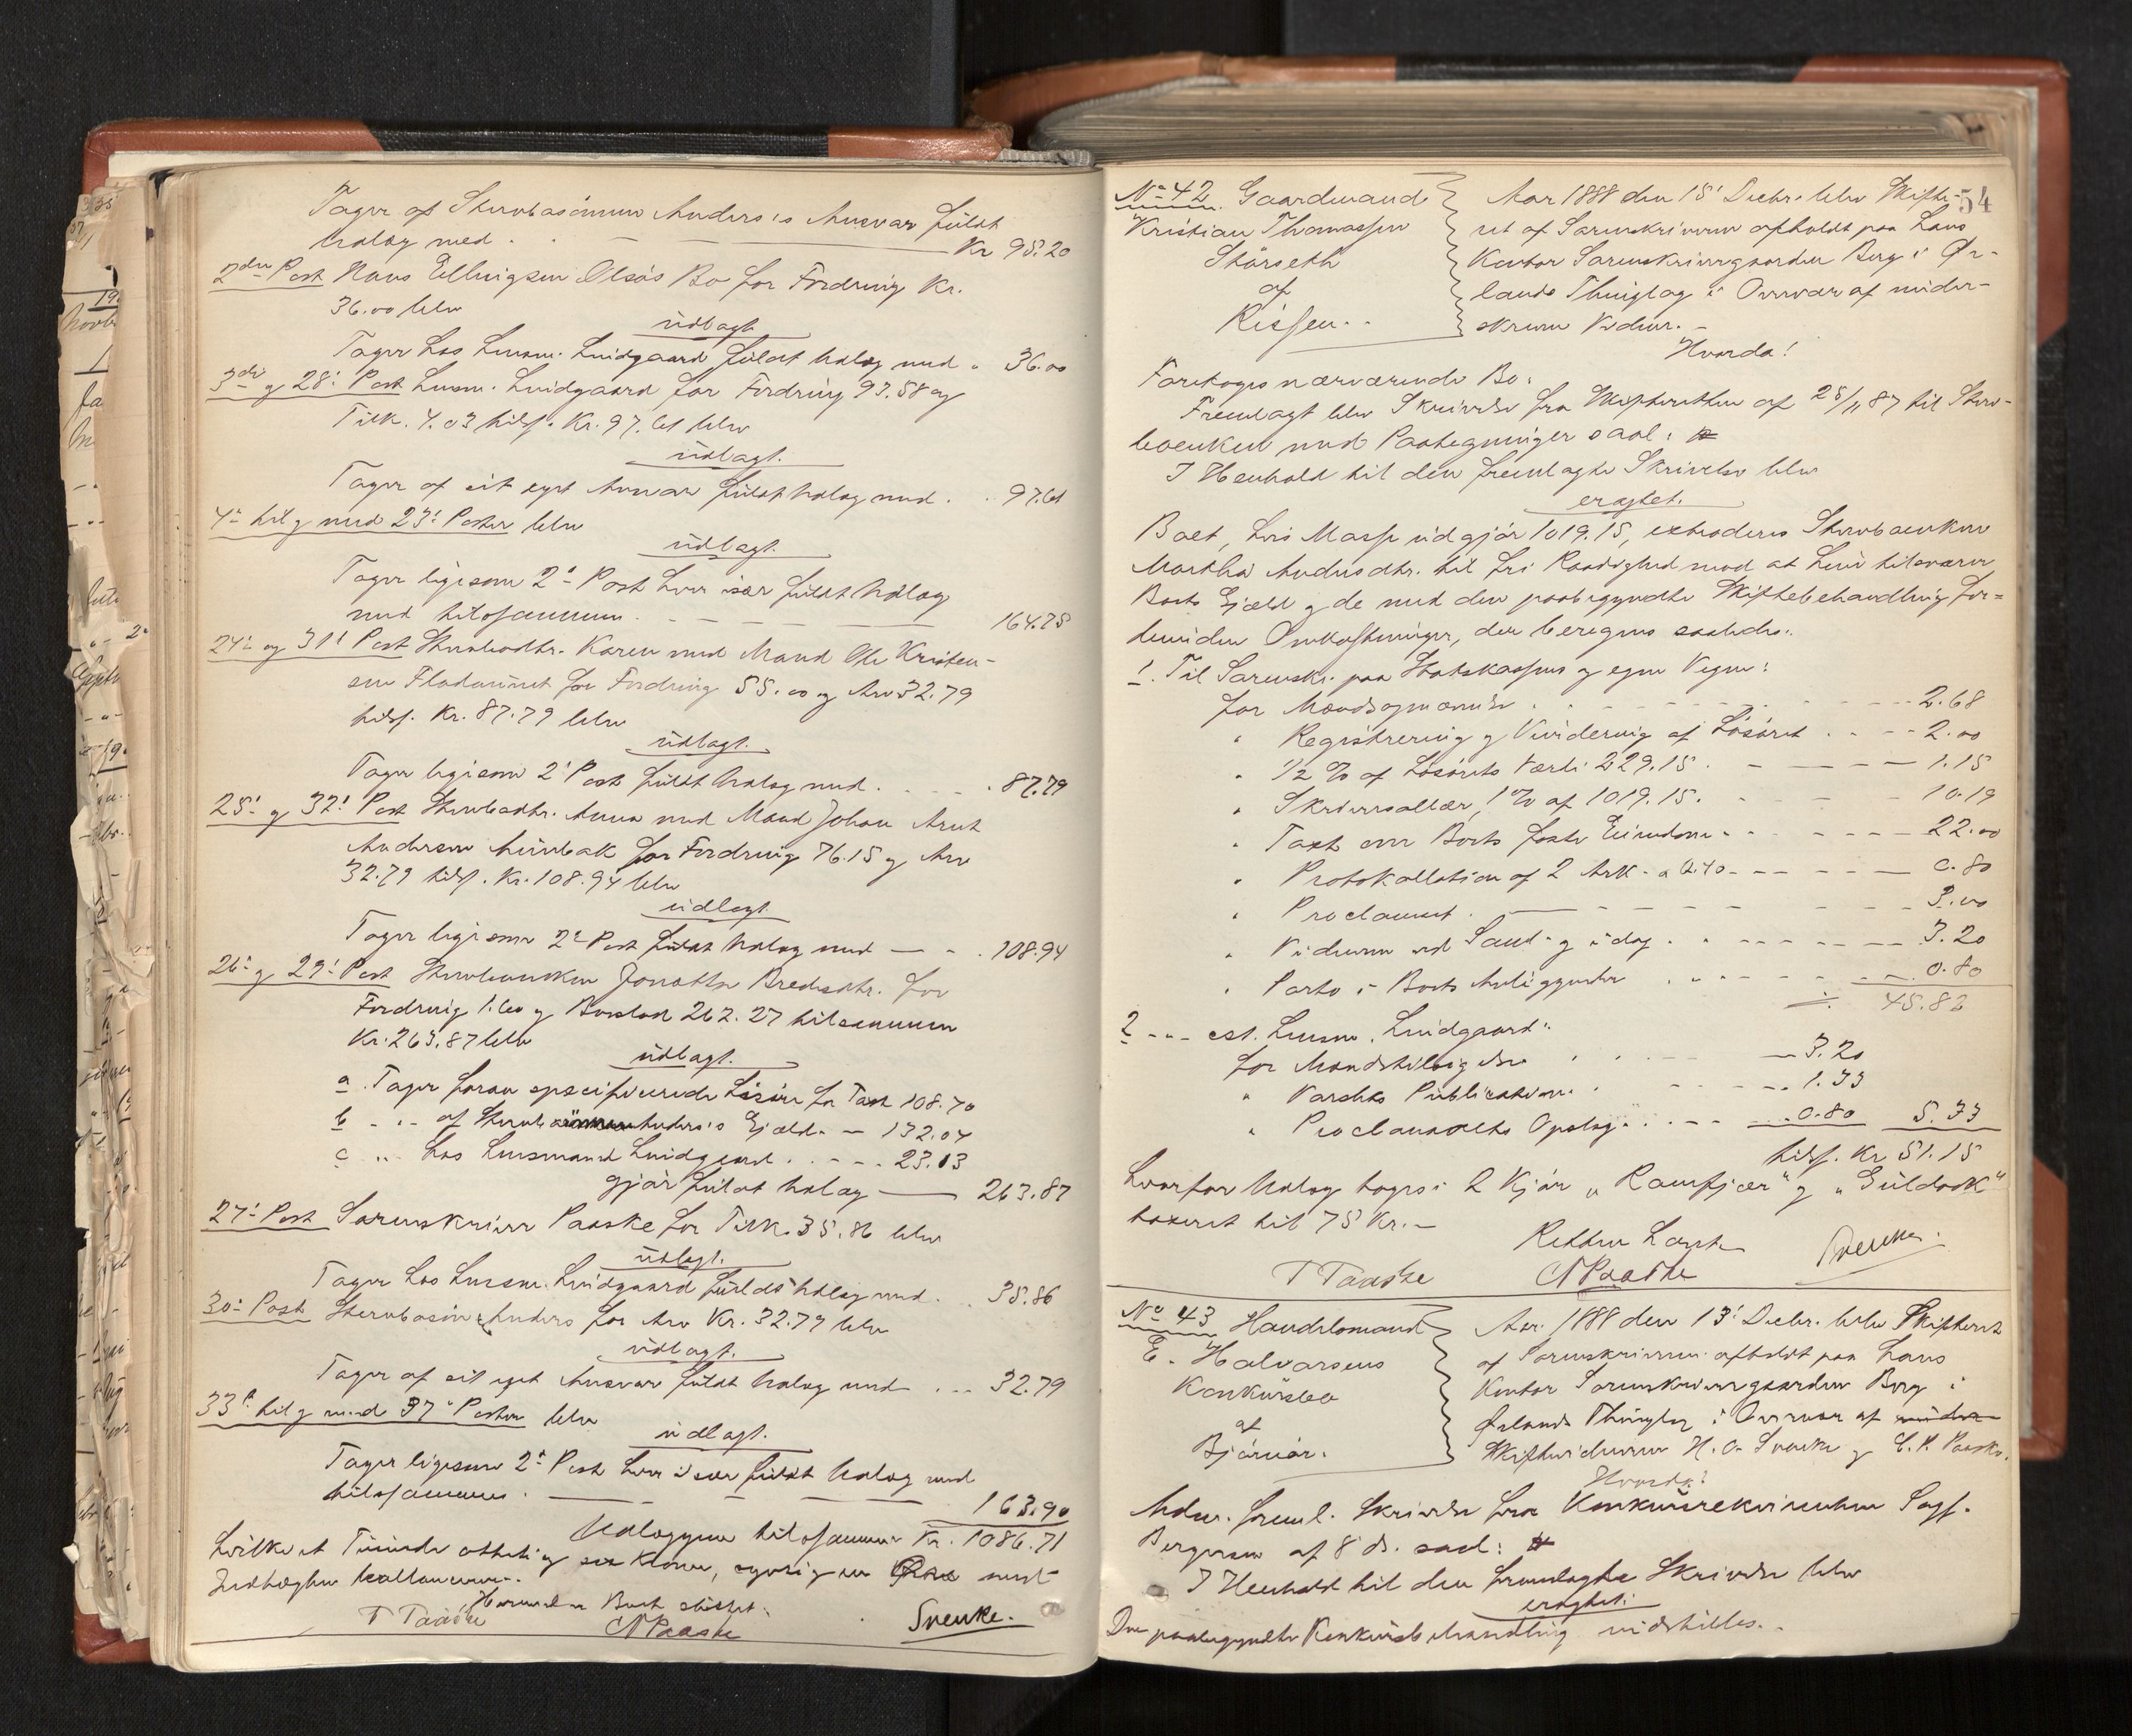 Tager af Stervbosönnen Anders's Ansvar fuldt
Udlæg med . . — — Kr 95.20
2den Post Hans Ellingsen Olsøs Bo for Fordring Kr.
36.00 blev
udlagt.
Tager hos Lensm. Lindgaard fuldt Udlæg med . 36.00
3die og 28: Post Lensm. Lindgaard for Fordring 93.58 og
Tilk. 4.03 tils. Kr. 97.61 blev
udlagt.
Tager af sit eget Ansvar fuldt Udlæg med . . 97.61
4- til og med 23: Poster blev
udlagt.
Tager ligesom 2- Post hver især fuldt Udlæg
med tilsammen . — — — 164.75
24- og 31: Post Stervbodtr. Karen med Mand Ole Kristen-
sen for Fordring 55.00 og Arv 32.79
tils. Kr. 87.79 blev
udlagt.
Tager ligesom 2: Post fuldt Udlæg med . . . . 87.79
25: og 32: Post Stervbodtr. Anna med Mand Johan Arnt
Andersen for Fordring 76.15 og Arv
32.79 tils. Kr. 108.94 blev
udlagt.
Tager ligesom 2: Post fuldt Udlæg med — - . 108.94
26- og 29: Post Stervboenken Jonetta Bredesdtr. for
Fordring 1.60 og Boslod 262.27 tilsammen
Kr. 263.87 blev
udlagt.
a. Tager foran specificerede Løsøre for Taxt 108.70
b - . - af Stervbosönnen Anders's Gjæld. — 132.04
c " . hos Lensmand Lindgaard . . - - . 23.13
gjør fuldt Udlæg — 263.87
27: Post Sorenskriver Paaske for Tilk. 35.86 blev
udlagt.
Tager hos Lensm. Lindgaard fuldt Udlæg med . . 35.86
30- Post Stervbosön Anders for Arv Kr. 32.79 blev
udlagt.
Tager af sit eget Ansvar fuldt Udlæg med . . . 32.79
33- til og med 37- Poster blev
udlagt.
Tager ligesom 2- Post hver især fuldt Udlæg med
tilsammen . — — — — 163.90
Udlæggene tilsammen Kr. 1086.71
hvilket Tusinde otteti og sex Kroner, syvti og en Øre med
Indtægten ballancerer.
Hermed er Boet sluttet.
T Paaske CN Paaske Svenke.
54
No 42. Gaardmand
Kristian Thomassen
Störseth
af
Rissen. .
Aar 1888 den 15' Decbr. blev Skifte-
ret af Sorenskriveren afholdt paa hans
Kontor Sorenskrivergaarden Berg i Ør-
lands Thinglag i Overvær af under-
skrevne Vidner. -
Hvorda!
Foretoges nærværende Bo.
Fremlagt blev Skrivelse fra Skifteretten af 25/11 87 til Sterv-
boenken med Paategninger saal: #
I Henhold til den fremlagte Skrivelse blev
eragtet.
Boet, hvis Masse udgjør 1019.15, extraderes Stervboenken
Martha Andersdtr. til fri Raadighed mod at hun tilsvarer
Boets Gjæld og de med den paabegyndte Skiftebehandling for-
bundne Omkostninger, der beregnes saaledes:
1. Til Sorenskr. paa Statskassens og egne Vegne:
for Mandsopnævnelse . - - - - - - - 2.68
" Registrering og Vurdering af Løsøret . . - - 2.00
" 1/2 % af Løsørets Værdi 229.15 . - - - - 1.15
" Skriversallær, 1 % af 1019.15. - - - - 10.19
" Taxt over Boets faste Eiendom - - - - - 22.00
" Protokollation af 2 Ark. a 0.40 - - - - - 0.80
" Proclamet . — - - - - - - 3.00
" Vidnerne ved Saml. og idag . . - - - - - 3.20
" Porto i Boets Anliggender . . - - - - 0.80
÷ 45.82
2 - - - cst. Lensm. Lindgaard:
for Mandstilsigelse . . - - — 3.20
" Varslets Publication . . - - - - 1.33
" Proclamaets Opslag . . - - - 0.80 5.33
tils. Kr 51.15
hvorfor Udlæg toges i 2 Kjør "Ramfjær" og "Guldaak"
taxeret til 75 Kr. -
Retten hævet
T Paaske CN Paaske Svenke.
No 43 Handelsmand
E. Halvorsens
Konkursbo
af
Bjørnør.
Aar 1888 den 13' Decbr. blev Skifteret
af Sorenskriveren afholdt paa hans
Kontor Sorenskrivergaarden Berg i
Ørlands Thinglag i Overvær af under-
Skiftevidnerne H. O. Svenke og C. N. Paaske.
Hvorda!
Adm. freml. Skrivelse fra Konkursrekvirenten Sagf.
Bergersen af 8 ds. saal: #
I Henhold til den fremlagte Skrivelse blev
eragtet:
Den paabegyndte Konkursbehandling indstilles. -